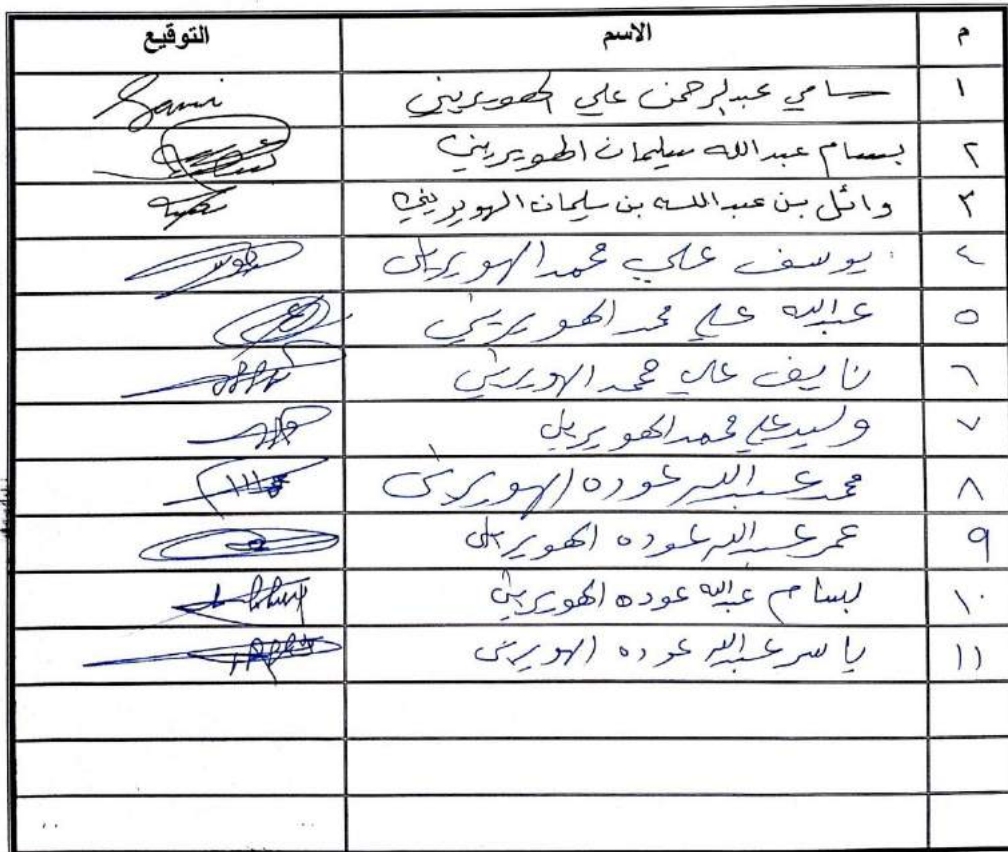 م الاسم التوقيع
١ سامي عبدالرحمن علي الهويريني Sami
٢ بسام عبدالله سليمان الهويريني
٣ وائل بن عبدالله بن سليمان الهويريني
٤ يوسف علي محمد الهويريني
٥ عبدالله علي محمد الهويريني
٦ نايف علي محمد الهويريني
٧ وليد علي محمد الهويريني
٨ محمد عبدالله عوده الهويريني
٩ عمر عبدالله عوده الهويريني
١٠ بسام عبدالله عوده الهويريني
١١ ياسر عبدالله عوده الهويريني